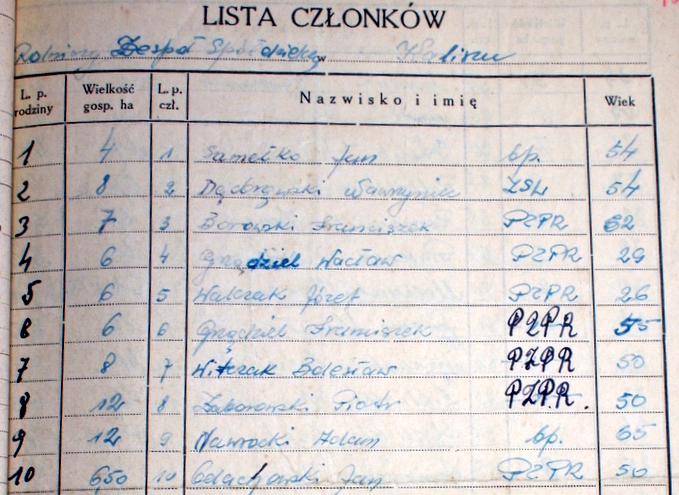 LISTA CZŁONKÓW
Rolniczy Zespół Spółdzielczy w
L. p. rodziny Wielkość gosp. ha L. p. czł. Nazwisko i imię Wiek
1 4 1 Jan bp. 54
2 8 2 Dąbrowski Wawrzyniec ZSL 54
3 7 3 Borowski Franciszek PZPR 62
4 6 4 Grądziel Wacław PZPR 29
5 6 5 Walczak Józef PZPR 26
6 6 6 Grądziel Franciszek PZPR 55
7 8 7 Witczak Bolesław PZPR 50
8 12 8 Zaborowski Piotr PZPR. 50
9 12 9 Nawrocki Adam bp. 65
10 6,50 10 Jan PZPR 50